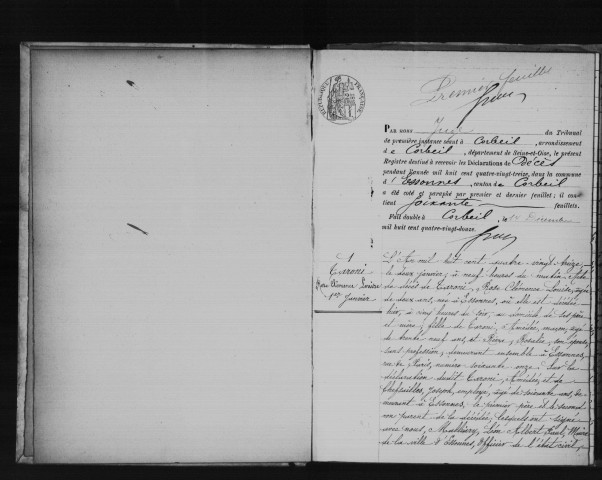 Premier feuillet
RÉPUBLIQUE FRANÇAISE
PAR NOUS Juge du Tribunal
de première instance séant à Corbeil, arrondissement
de Corbeil, département de Seine-et-Oise, le présent
Registre destiné à recevoir les Déclarations de Décès
pendant l'année mil huit cent quatre-vingt-treize, dans la commune
d'Essonnes, canton de Corbeil
a été coté et paraphé par premier et dernier feuillet; il con-
tient soixante feuillets.
Fait double à Corbeil, le Décembre
mil huit cent quatre-vingt-douze.
1
Taroni
Rose Clémence Louise
1er Janvier
L'An mil huit cent quatre vingt treize,
le deux janvier, à neuf heures du matin, Acte
de décès de Taroni, Rose Clémence Louise, âgée
de deux ans, née à Essonnes, où elle est décédée
hier, à cinq heures du soir, au domicile de ses père
et mère; fille de Taroni, Amédée, maçon, âgé
de trente neuf ans, et Rosalie, son épouse,
sans profession, demeurant ensemble à Essonnes,
rue de Paris, numéro soixante onze; Sur la
déclaration dudit Taroni, Amédée, et de
Joseph, employé, âgé de soixante ans, de-
meurant à Essonnes, le premier père et le second
non parent de la décédée; lesquels ont signé
avec nous, Léon Albert Paul, Maire
de la ville d'Essonnes, Officier de l'état civil,